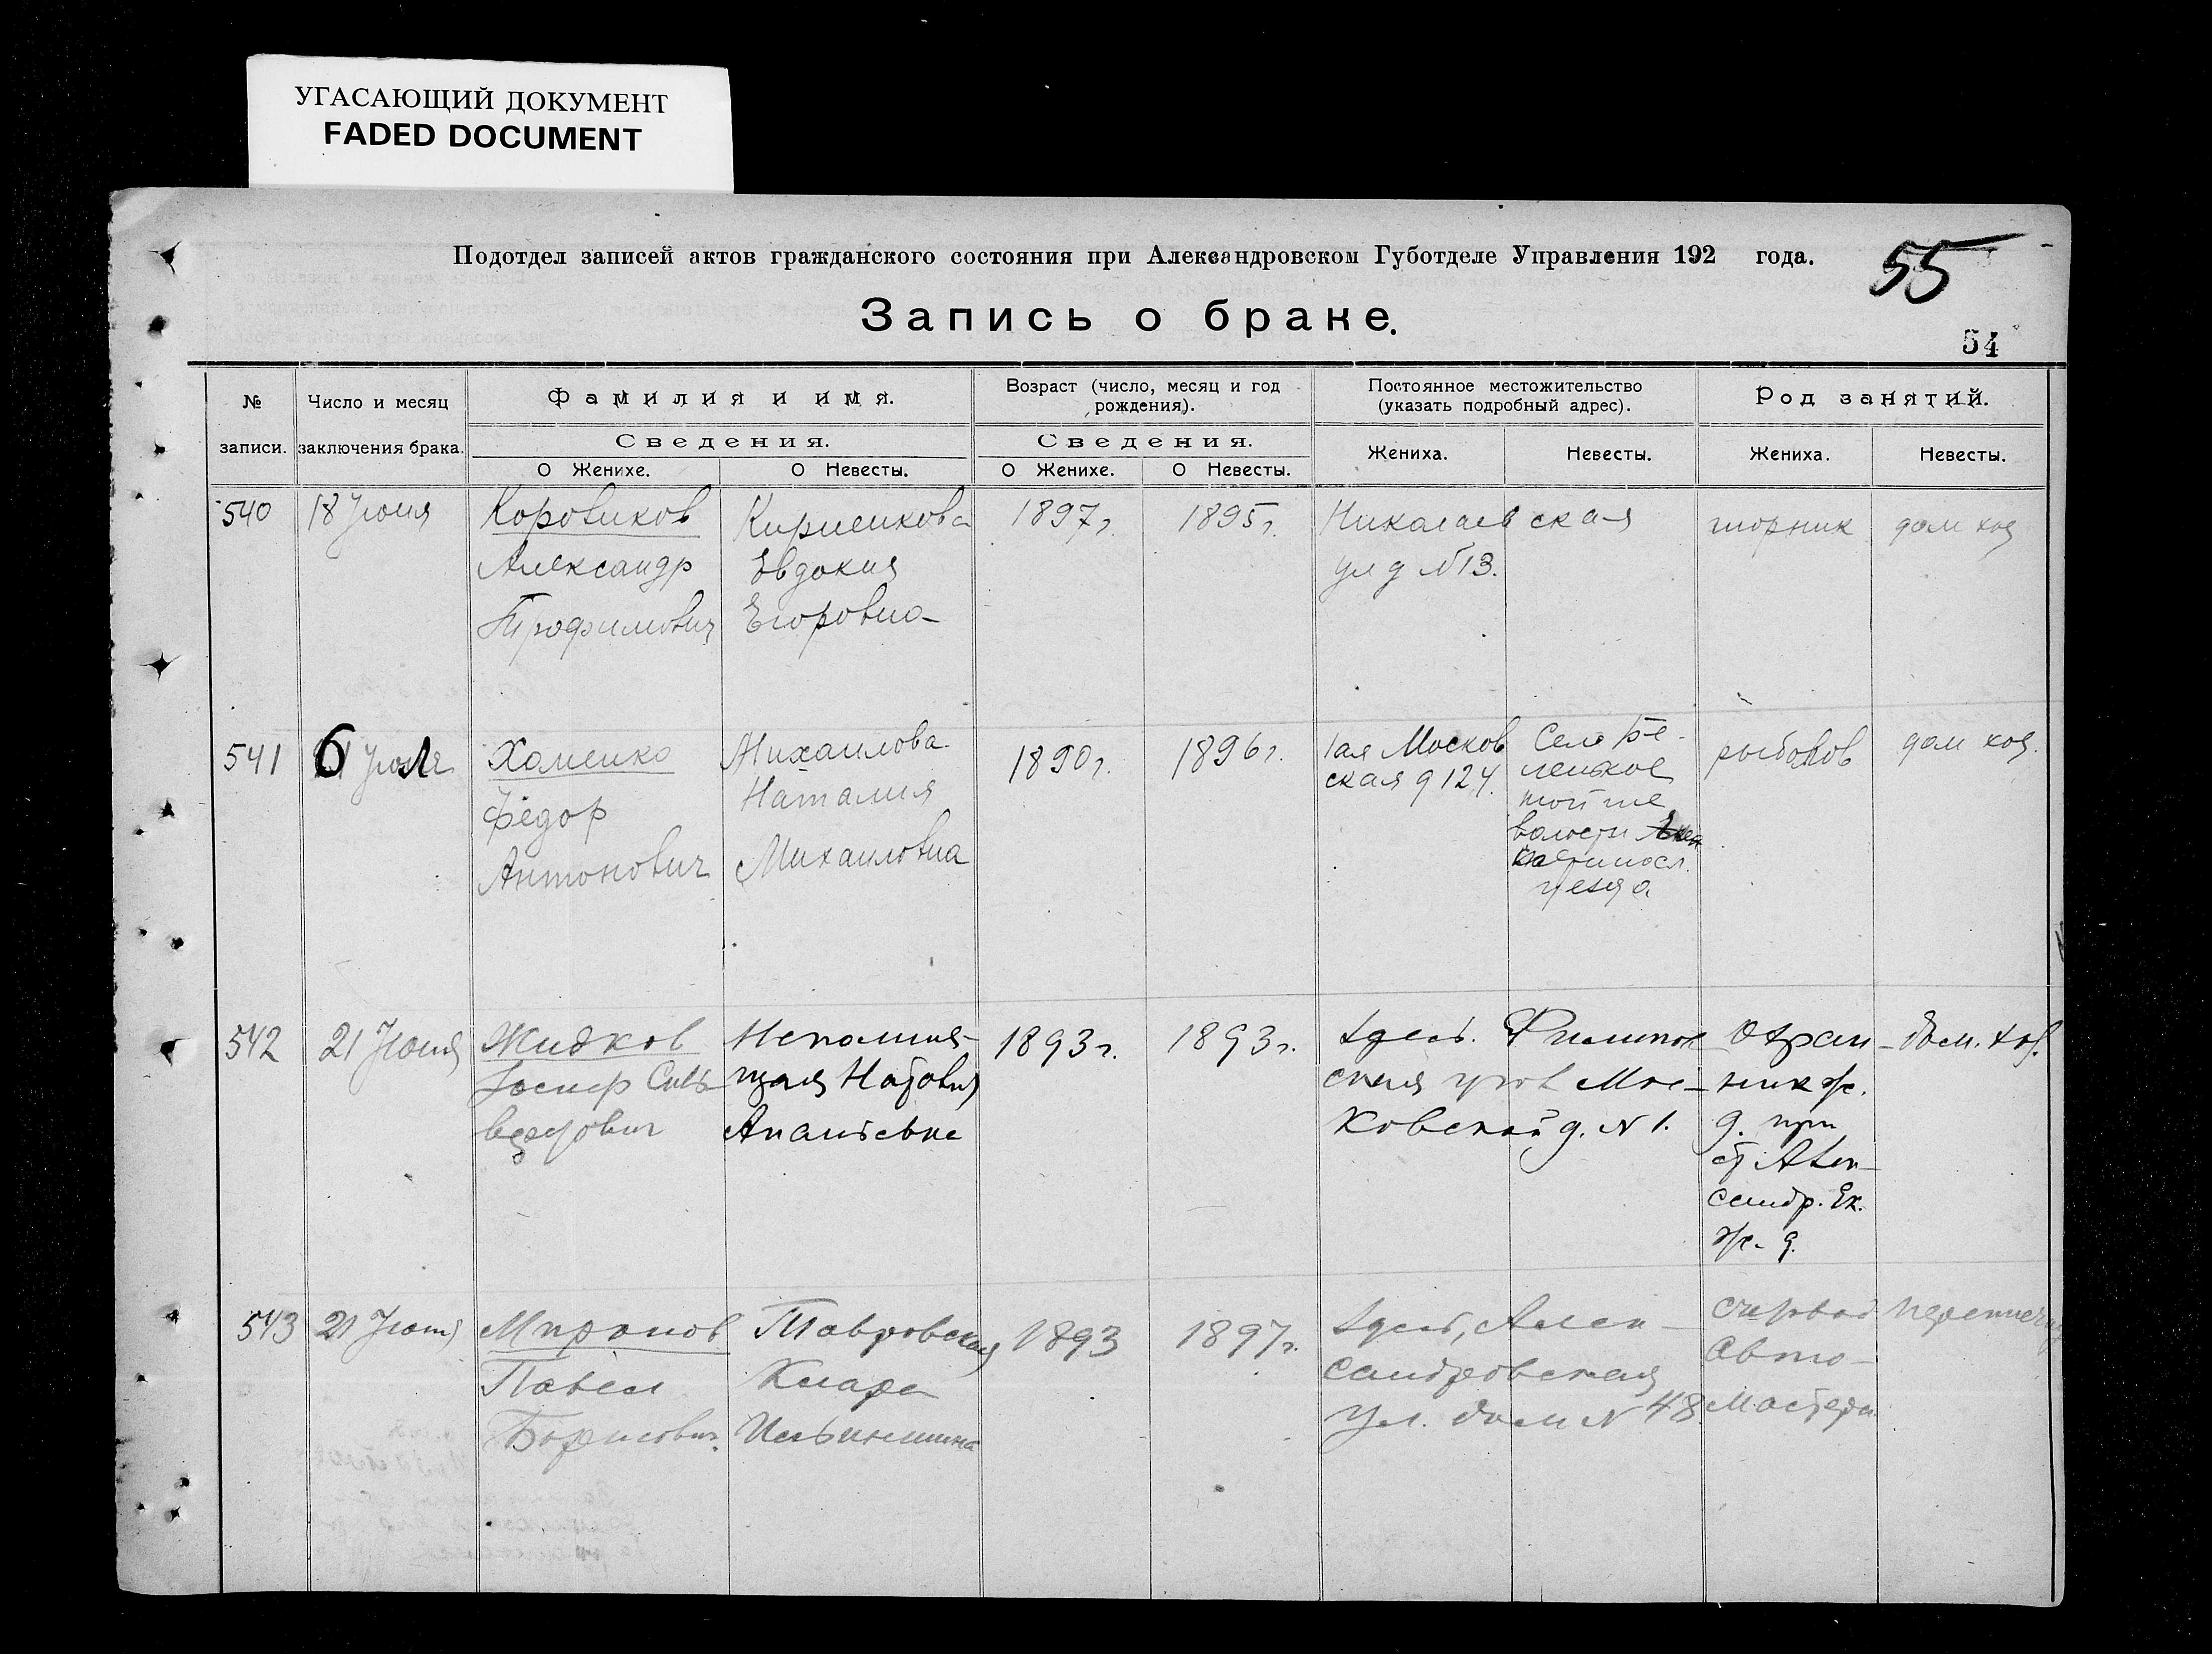 УГАСАЮЩИЙ ДОКУМЕНТ
FADED DOCUMENT
Подотдел записей актов гражданского состояния при Александровском Губотделе Управления 192 года.
55
Запись о браке.
54
№ записи.
Число и месяц заключения брака.
Фамилия и имя.
Сведения.
О Женихе.
О Невесты.
Возраст (число, месяц и год рождения).
Сведения.
О Женихе.
О Невесты.
Постоянное местожительство (указать подробный адрес).
Жениха.
Невесты.
Род занятий.
Жениха.
Невесты.
540
18 Июня
Коровиков
Александр
Трофимович
Кириенкова
Евдокия
Егоровна
1897 г.
1895 г.
Николаевская
ул д №13.
дом хоз
541
6 Июля
Хоменко
Федор
Антонович
Михаилова
Наталия
Михаиловна
1890 г.
1896 г.
1ая Москов
ская д 124.
Село Бе-
ленькое
той же
волости
уезда
рыболов
дом хоз.
542
21 Июня
Жидков
Иосиф
Непомня-
щая
Ананьевна
1893 г.
1893 г.
Здесь.
ская угол Мос-
ковской д. №1.
Охран-
ник ж.
д. при
ст Алек-
сандр. Ек.
ж. д.
Дом. хоз.
543
21 Июня
Миронов
Павел
Борисович
Тавровская
Клара
1893
1897 г.
Здесь, Алек-
сандровская
ул. дом № 48
Авто-
Мастера